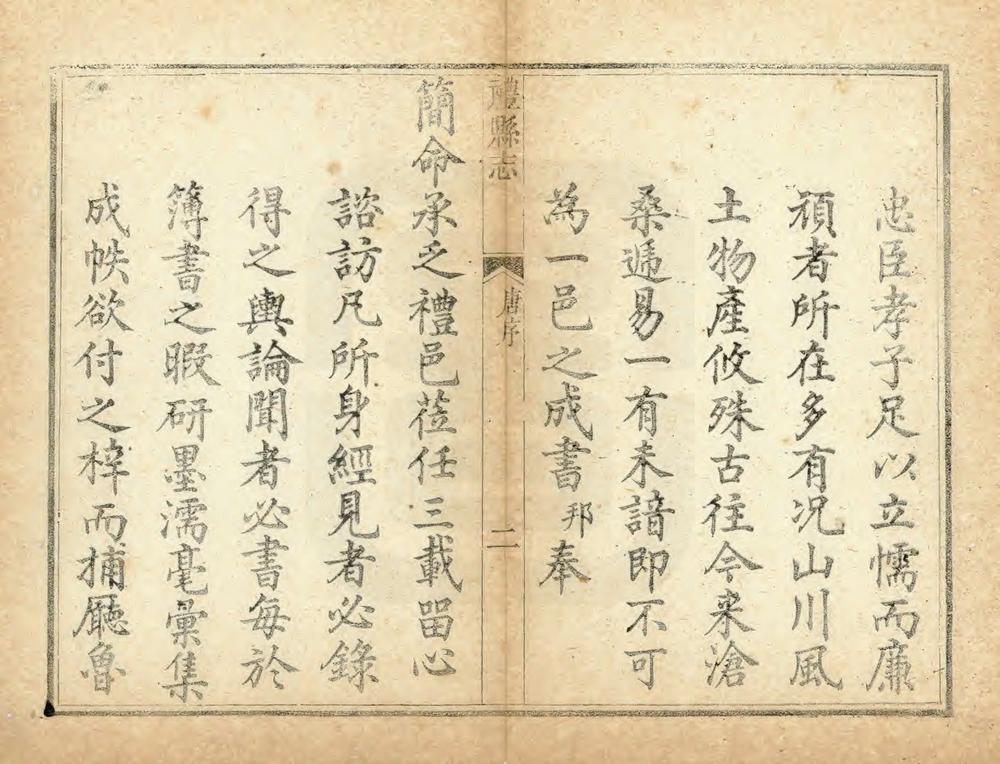 忠臣孝子足以立懦而廉
頑者所在多有况山川風
土物產攸殊古往今来滄
桑遞易一有未諳即不可
為一邑之成書邦奉
禮縣志
唐序
二
簡命承乏禮邑蒞任三載留心
諮訪凡所身經見者必錄
得之輿論聞者必書每於
簿書之暇研墨濡毫彙集
成帙欲付之梓而捕廳魯